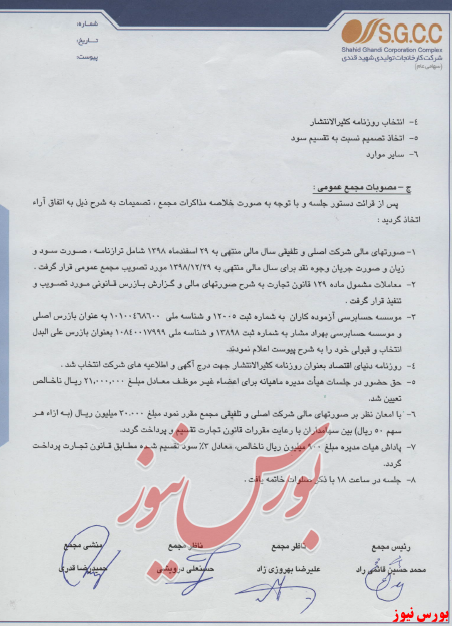 S.G.C.C
Shahid Ghandi Corporation Complex
شرکت کارخانجات تولیدی شهید قندی
(سهامی عام)
شماره:
تاریخ:
پیوست:
۴- انتخاب روزنامه کثیرالانتشار
۵- اتخاذ تصمیم نسبت به تقسیم سود
۶- سایر موارد
ج – مصوبات مجمع عمومی :
پس از قرائت دستور جلسه و با توجه به صورت خلاصه مذاکرات مجمع، تصمیمات به شرح ذیل به اتفاق آراء
اتخاذ گردید :
۱- صورتهای مالی شرکت اصلی و تلفیقی سال مالی منتهی به ۲۹ اسفندماه ۱۳۹۸ شامل ترازنامه ، صورت سود و
زیان و صورت جریان وجوه نقد برای سال مالی منتهی به ۱۳۹۸/۱۲/۲۹ مورد تصویب مجمع عمومی قرار گرفت .
۲- معاملات مشمول ماده ۱۲۹ قانون تجارت به شرح صورتهای مالی و گزارش بازرس قانونی مورد تصویب و
تنفیذ قرار گرفت .
۳- موسسه حسابرسی آزموده کاران به شماره ثبت ۱۲۰۰۵ و شناسه ملی ۱۰۱۰۰۴۶۸۶۰۰ به عنوان بازرس اصلی
و موسسه حسابرسی بهراد مشار به شماره ثبت ۱۳۸۹۸ و شناسه ملی ۱۰۸۴۰۰۱۷۹۹۹ به عنوان بازرس علی البدل
انتخاب و قبولی خود را به شرح پیوست اعلام نمودند.
۴- روزنامه دنیای اقتصاد بعنوان روزنامه کثیرالانتشار جهت درج آگهی و اطلاعیه های شرکت انتخاب شد .
۵- حق حضور در جلسات هیأت مدیره ماهیانه برای اعضاء غیر موظف معادل مبلغ ۲۱,۰۰۰,۰۰۰ ریال ناخالص
تعیین شد.
۶- با امعان نظر بر صورتهای مالی شرکت اصلی و تلفیقی مجمع مقرر نمود مبلغ ۳۰,۰۰۰ میلیون ریال (به ازاء هر
سهم ۵۰ ریال) بین سهامداران با رعایت مقررات قانون تجارت تقسیم و پرداخت گردد.
۷- پاداش هیات مدیره مبلغ ۹۰۰ میلیون ریال ناخالص، معادل ۳٪ سود تقسیم شده مطابق قانون تجارت پرداخت
گردد.
۸- جلسه در ساعت ۱۸ با ذکر صلوات خاتمه یافت .
رئیس مجمع
ناظر مجمع
ناظر مجمع
منشی مجمع
محمد حسین قائمی راد
علیرضا بهروزی زاد
حسنعلی درویشی
حمیدرضا قدری
بورس نیوز
بورس نیوز